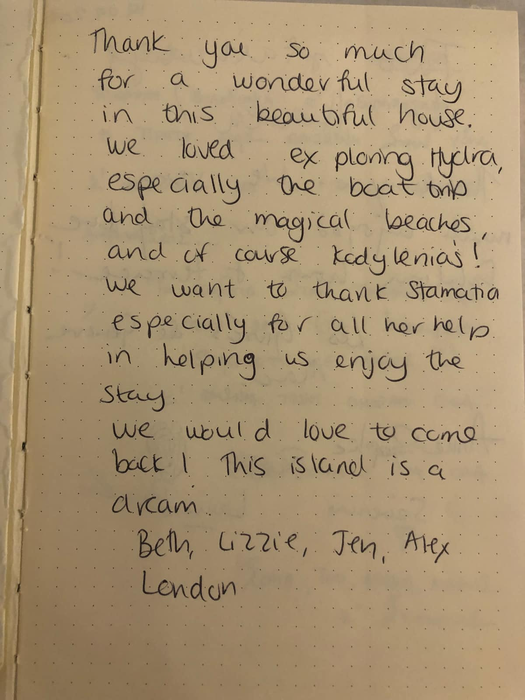 Thank you so much
for a wonderful stay
in this beautiful house.
we loved exploring Hydra,
especially the boat trip
and the magical beaches,
and of course Kodylenias!
we want to thank Stamatia
especially for all her help
in helping us enjoy the
stay.
we would love to come
back! This island is a
dream.
Beth, Lizzie, Jen, Alex
London